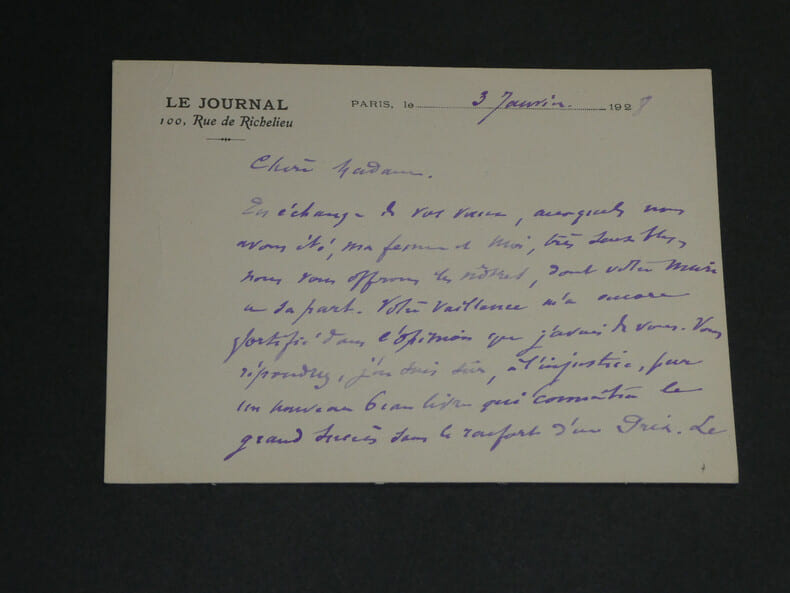 LE JOURNAL
100, Rue de Richelieu
PARIS, le 3 Janvier 1928
Chère Madame.
En échange de vos vœux, auxquels nous
avons été, ma femme et moi, très sensibles,
nous vous offrons les nôtres, dont votre mari
a sa part. Votre vaillance m'a encore
fortifié dans l'opinion que j'avais de vous. Vous
répondrez, j'en suis sûr, à l'injustice, par
un nouveau beau livre qui connaîtra le
grand succès sans le renfort d'un Prix. Le